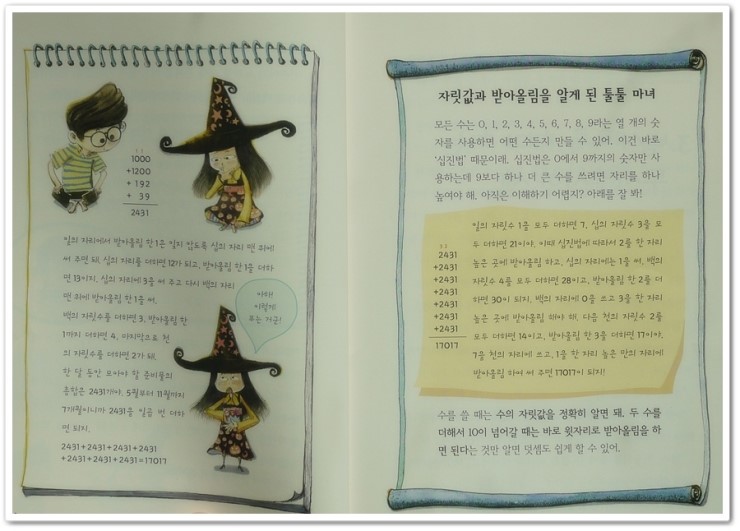 1 1
1000
+1200
+ 192
+ 39
2431
일의 자리에서 받아올림 한 1은 잊지 않도록 십의 자리 맨 위에
써 주면 돼. 십의 자리를 더하면 12가 되고, 받아올림 한 1을 더하
면 13이지. 십의 자리에 3을 써 주고 다시 백의 자리
맨 위에 받아올림 한 1을 써.
백의 자릿수를 더하면 3, 받아올림 한
1까지 더하면 4, 마지막으로 천
의 자릿수를 더하면 2가 돼.
한 달 동안 모아야 할 준비물의
총합은 2431개야. 5월부터 11월까지
7개월이니까 2431을 일곱 번 더하
면 되지.
2431+2431+2431+2431
+2431+2431+2431=17017
아하!
이렇게
푸는 거군!
자릿값과 받아올림을 알게 된 툴툴 마녀
모든 수는 0, 1, 2, 3, 4, 5, 6, 7, 8, 9라는 열 개의 숫
자를 사용하면 어떤 수든지 만들 수 있어. 이건 바로
'십진법' 때문이래. 십진법은 0에서 9까지의 숫자만 사
용하는데 9보다 하나 더 큰 수를 쓰려면 자리를 하나
높여야 해. 아직은 이해하기 어렵지? 아래를 잘 봐!
2431
+2431
+2431
+2431
+2431
+2431
+2431
17017
일의 자릿수 1을 모두 더하면 7, 십의 자릿수 3을 모
두 더하면 21이야. 이때 십진법에 따라서 2를 한 자리
높은 곳에 받아올림 하고, 십의 자리에는 1을 써. 백의
자릿수 4를 모두 더하면 28이고, 받아올림 한 2를 더
하면 30이 되지. 백의 자리에 0을 쓰고 3을 한 자리
높은 곳에 받아올림 해야 해. 다음 천의 자릿수 2를
모두 더하면 14이고, 받아올림 한 3을 더하면 17이야.
7을 천의 자리에 쓰고, 1을 한 자리 높은 만의 자리에
받아올림 하여 써 주면 17017이 되지!
수를 쓸 때는 수의 자릿값을 정확히 알면 돼. 두 수를
더해서 10이 넘어갈 때는 바로 윗자리로 받아올림을 하
면 된다는 것만 알면 덧셈도 쉽게 할 수 있어.